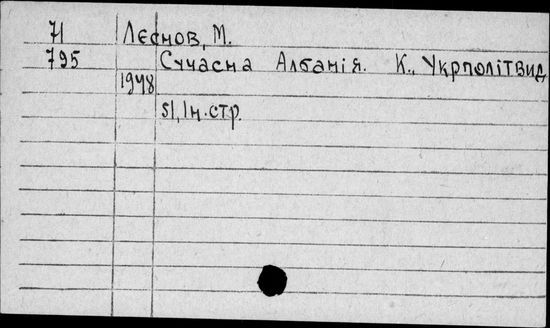 71 Лєснов, М.
795 Сучасна Албанія. К., Укрполітвид
1948
51, 1 н. стр.